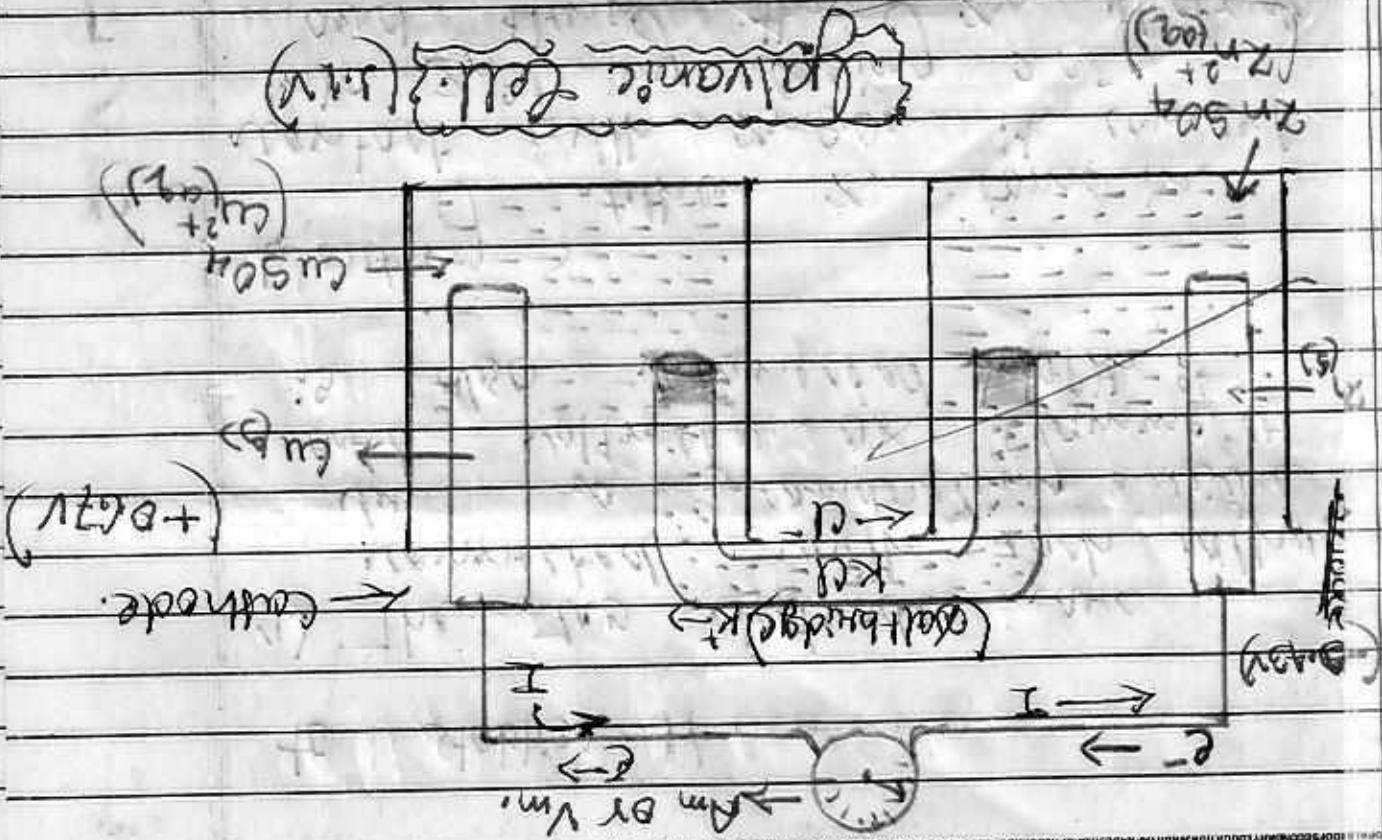 Am or Vm.
e⁻ → e⁻ →
← I I
(saltbridge) K⁺ →
KCl
← Cl⁻
Cathode.
(+ 0.67V)
Cu(s)
CuSO4
(Cu²⁺(aq))
ZnSO4
(Zn²⁺(aq))
{Galvanic Cell.} (1.1V)